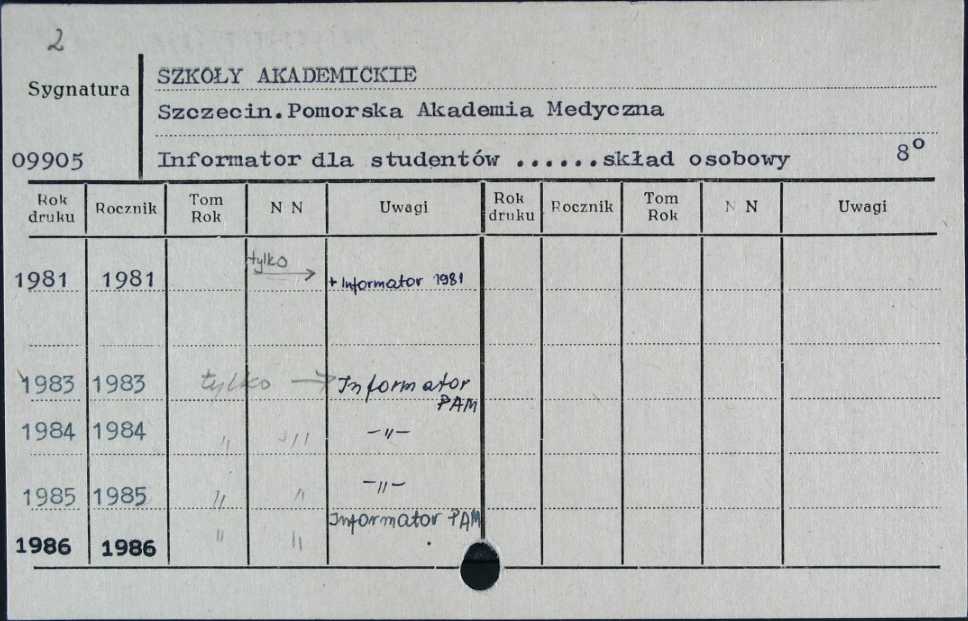 2
Sygnatura
SZKOŁY AKADEMICKIE
Szczecin.Pomorska Akademia Medyczna
09905 Informator dla studentów ......skład osobowy 8°
Rok druku Rocznik Tom Rok N N Uwagi Rok druku Rocznik Tom Rok N N Uwagi
1981 1981 tylko → + Informator 1981
1983 1983 tylko → Informator PAM
1984 1984 " " -"-
1985 1985 " " -"-
1986 1986 " " Informator PAM